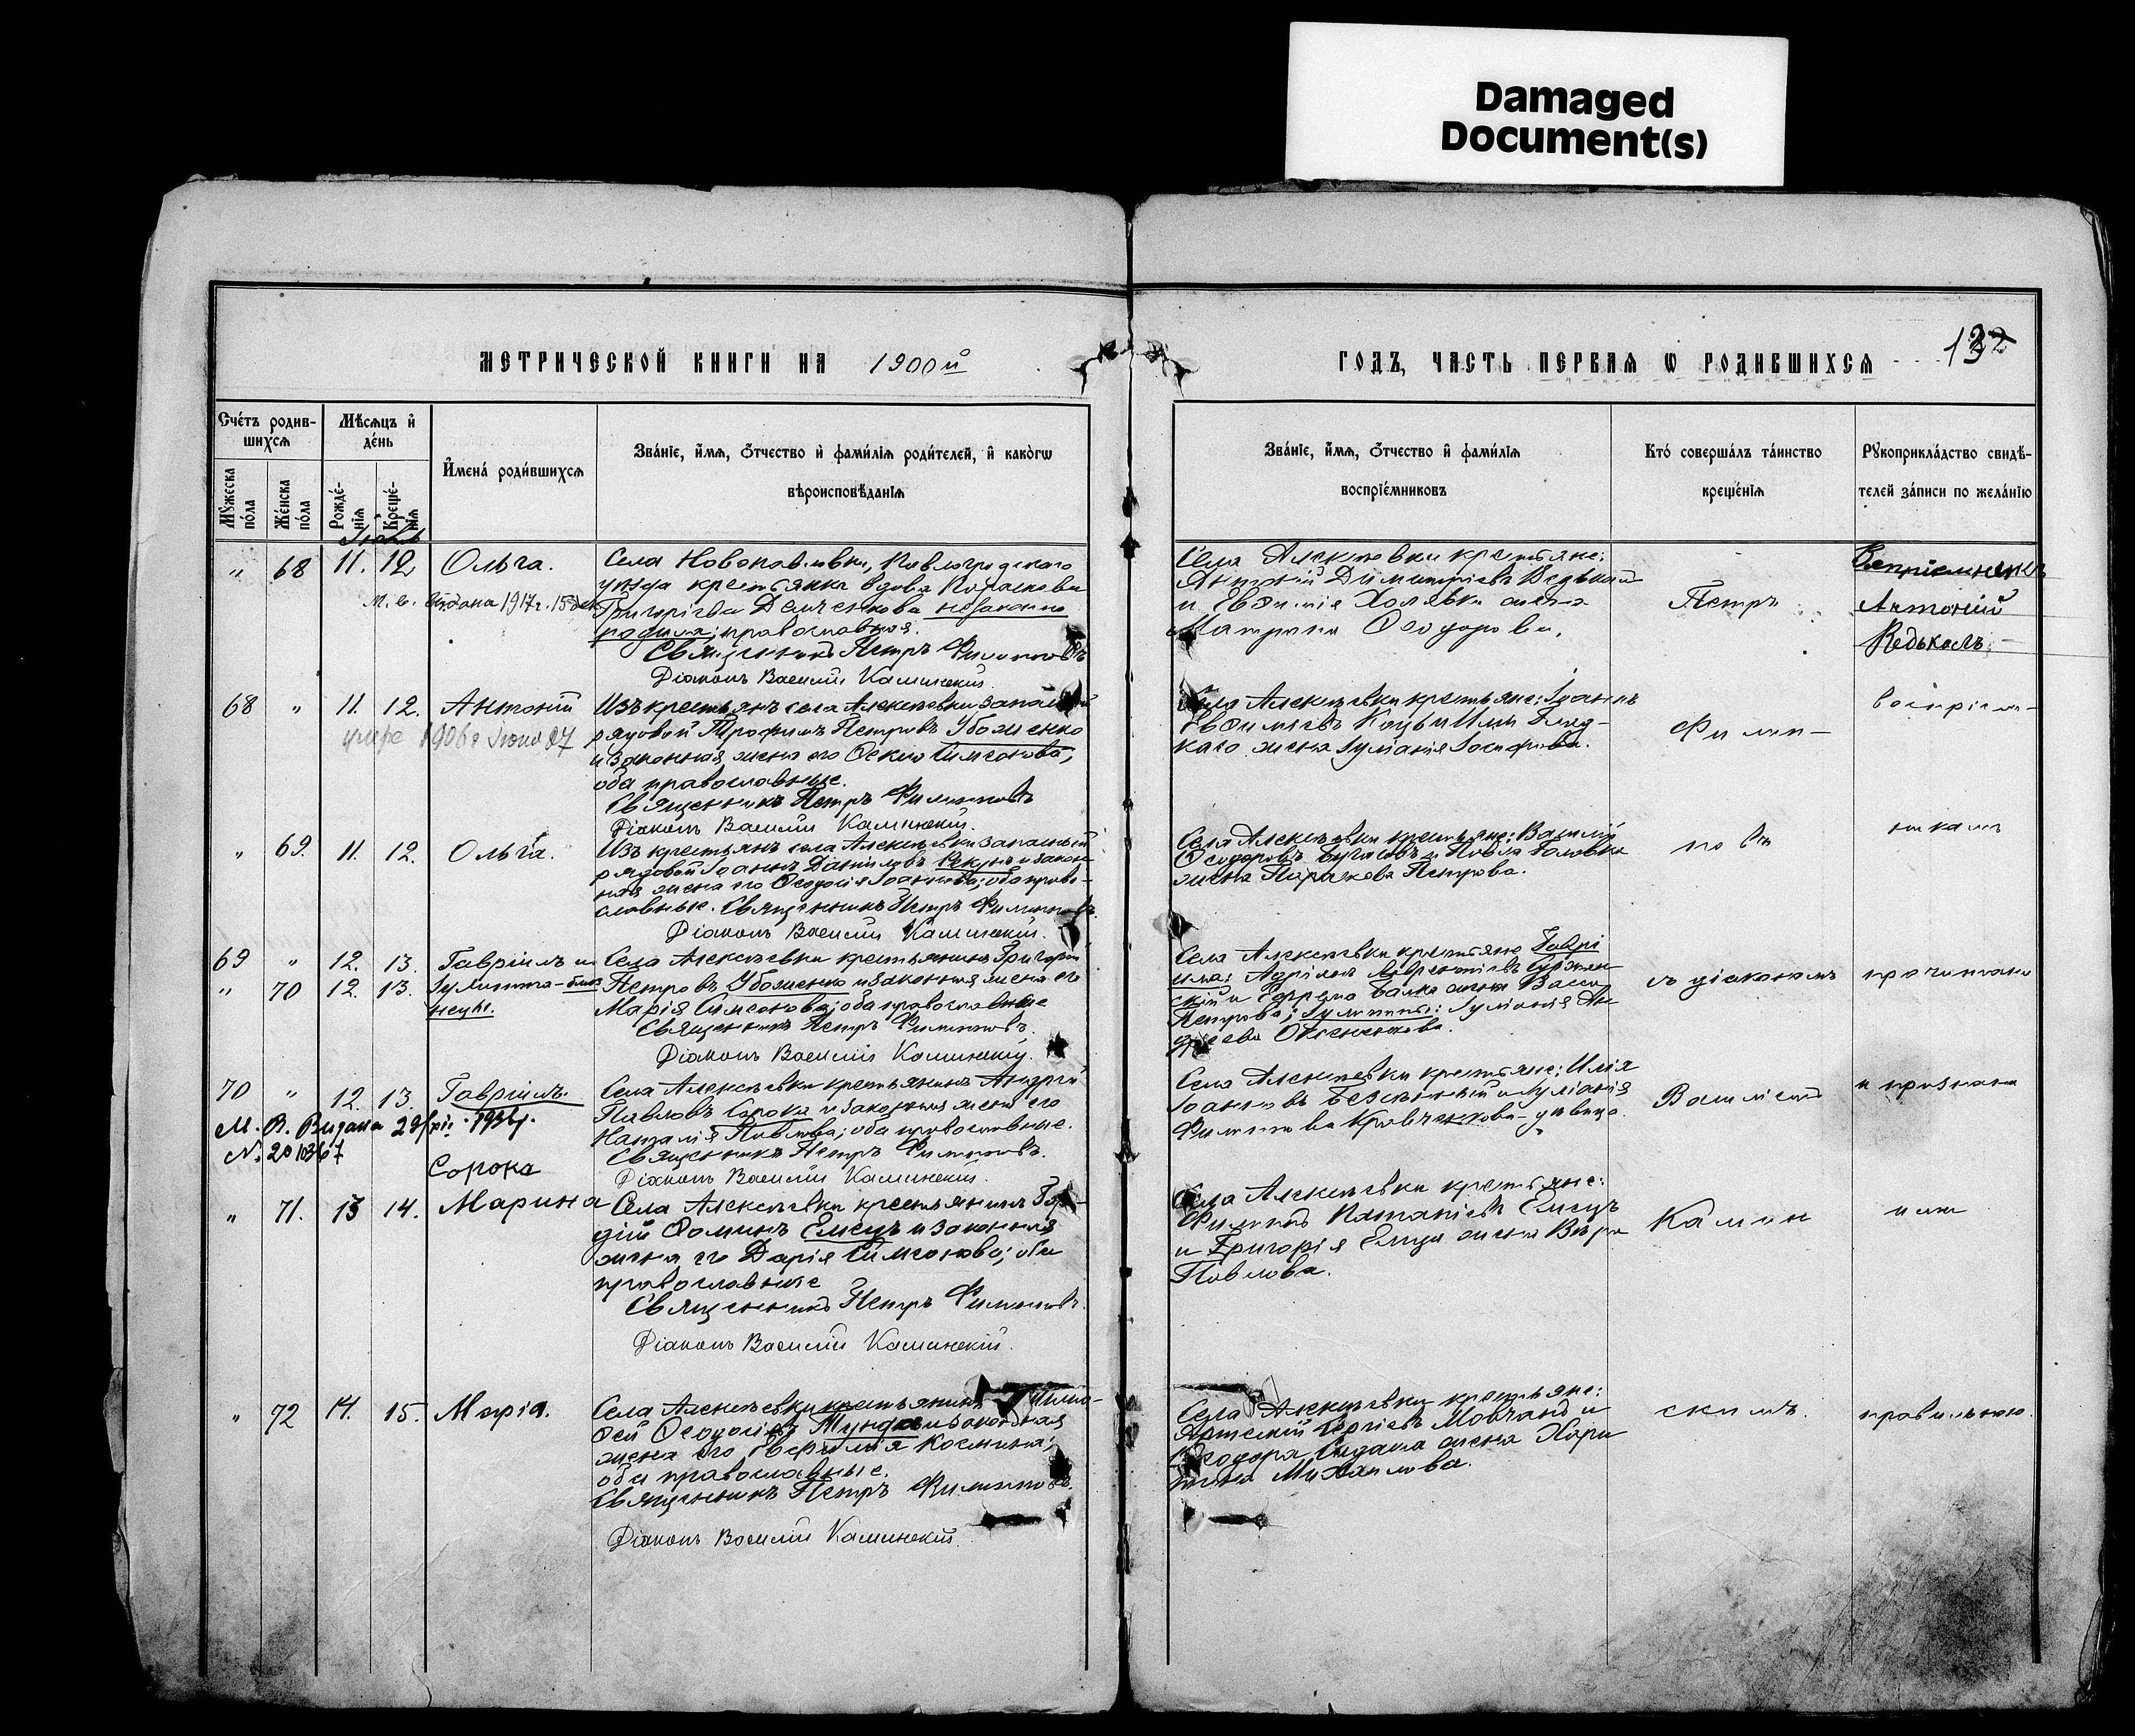 Damaged
Document(s)
МЕТРИЧЕСКОЙ КНИГИ НА 1900й
ГОДЪ, ЧАСТЬ ПЕРВАЯ Ѡ РОДИВШИХСЯ
132
Счéтъ родив-
шихсѧ
Мѣсѧцъ и҆
дéнь
Мꙋжеска
пóла
Жéнска
пóла
Рождé-
нїѧ
Крещé-
нїѧ
И҆мена́ роди́вшихсѧ
Зва́нїе, и҆́мѧ, ѻ҆́тчество и҆ фами́лїѧ роди́телей, и҆ како́гѡ
вѣроисповѣ́данїѧ
Зва́нїе, и҆́мѧ, ѻ҆́тчество и҆ фами́лїѧ
воспрїе́мниковъ
Кто́ соверша́лъ та́инство
креще́нїѧ
Рꙋкоприкла́дство свидѣ́-
телей за́писи по жела́нїю
„ 68 11. 12 Ольга.
Села Новопавловки, Павлоградскаго
уѣзда крестьянка вдова
Григоріева Демченкова незаконно
родила; православная.
Священникъ Петръ Филипповъ
Діаконъ Василій Каминскій.
М. в. выдана 1917 г. 15 дек
Села Алексѣевки крестьяне:
Антоній Димитріевъ Ведькалъ
и Евѳимія жена
Матрона Ѳеодорова.
Петръ
Воспріемникъ
Антоній
Ведькалъ
68 „ 11. 12. Антоній
1906 г. Іюнь 27
Изъ крестьянъ села Алексѣевки запасный
рядовой Трофимъ Петровъ Убоженко
и законная жена его Симеонова,
оба православные.
Священникъ Петръ Филипповъ
Діаконъ Василій Каминскій.
Села Алексѣевки крестьяне: Іоаннъ
Евѳиміевъ
каго жена Іуліанія Іосифова.
Филип-
воспріем-
„ 69. 11. 12. Ольга.
Изъ крестьянъ села Алексѣевки запасный
рядовой Іоаннъ Даниловъ и закон-
ная жена его Ѳеодосія Іоаннова; оба право-
славные. Священникъ Петръ Филипповъ.
Діаконъ Василій Каминскій.
Села Алексѣевки крестьяне: Василій
Ѳеодоровъ и Павла Головка
жена Параскева Петрова.
повъ
никамъ
69 „ 12. 13. Гавріилъ и
„ 70 12. 13. Іулитта-близ
нецы.
Села Алексѣевки крестьянинъ Григорій
Петровъ Убоженко и законная жена его
Марія Симеонова; оба православные
Священникъ Петръ Филипповъ.
Діаконъ Василій Каминскій.
Села Алексѣевки крестьяне Гаврі
ила: Лаврентіевъ
жена
Петрова; Іулитты: Іуліанія Ан-
дреева
съ діакономъ
прочитана
70 „ 12. 13. Гавріилъ.
М. В. Видана
№ 201036
Сорока
Села Алексѣевки крестьянинъ Андрей
Павловъ Сорока и законная жена его
Наталія Павлова; оба православные.
Священникъ Петръ Филипповъ.
Діаконъ Василій Каминскій.
Села Алексѣевки крестьяне: Илія
Іоанновъ и Іуліанія
Филиппова Кравченкова-дѣвица.
Василіемъ
и признана
„ 71. 13 14. Марина
Села Алексѣевки крестьянинъ Гор-
дій Ѳоминъ Елецъ и законная
жена его Дарія Симеонова; оба
православные
Священникъ Петръ Филипповъ.
Діаконъ Василій Каминскій.
Села Алексѣевки крестьяне:
Филиппъ Елецъ
и Григорія Ельца жена Вѣра
Павлова.
Камин
ими
„ 72 14. 15. Марія.
Села Алексѣевки крестьянинъ Тимо-
ѳей Ѳеодосіевъ и законная
жена его Космина;
оба православные.
Священникъ Петръ Филипповъ.
Діаконъ Василій Каминскій.
Села Алексѣевки крестьяне:
Сергіевъ Мовчанъ и
Ѳеодора жена Хари
тина Михаилова.
скимъ.
правильною.